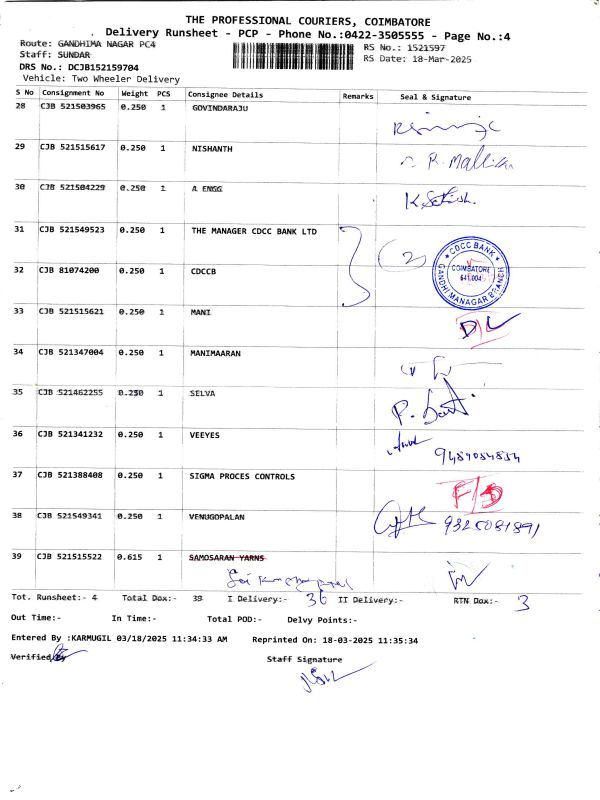 THE PROFESSIONAL COURIERS, COIMBATORE
Delivery Runsheet - PCP - Phone No.:0422-3505555 - Page No.:4
Route: GANDHIMA NAGAR PC4 RS No.: 1521597
Staff: SUNDAR RS Date: 18-Mar-2025
DRS No.: DCJB152159704
Vehicle: Two Wheeler Delivery
S No Consignment No Weight PCS Consignee Details Remarks Seal & Signature
28 CJB 521503965 0.250 1 GOVINDARAJU
29 CJB 521515617 0.250 1 NISHANTH
R. Mallika
30 CJB 521504229 0.250 1 A ENGG
K. Sathish.
31 CJB 521549523 0.250 1 THE MANAGER CDCC BANK LTD
2
CDCC BANK
COIMBATORE
641 004
GANDHI MANAGAR BRANCH
32 CJB 81074200 0.250 1 CDCCB
33 CJB 521515621 0.250 1 MANI
D/L
34 CJB 521347004 0.250 1 MANIMAARAN
35 CJB 521462255 0.250 1 SELVA
36 CJB 521341232 0.250 1 VEEYES
9489084884
37 CJB 521388408 0.250 1 SIGMA PROCES CONTROLS
F/S
38 CJB 521549341 0.250 1 VENUGOPALAN
9325081891
39 CJB 521515522 0.615 1 SAMOSARAN YARNS
Tot. Runsheet:- 4 Total Dox:- 39 I Delivery:- 36 II Delivery:- RTN Dox:- 3
Out Time:- In Time:- Total POD:- Delvy Points:-
Entered By :KARMUGIL 03/18/2025 11:34:33 AM Reprinted On: 18-03-2025 11:35:34
Verified By Staff Signature